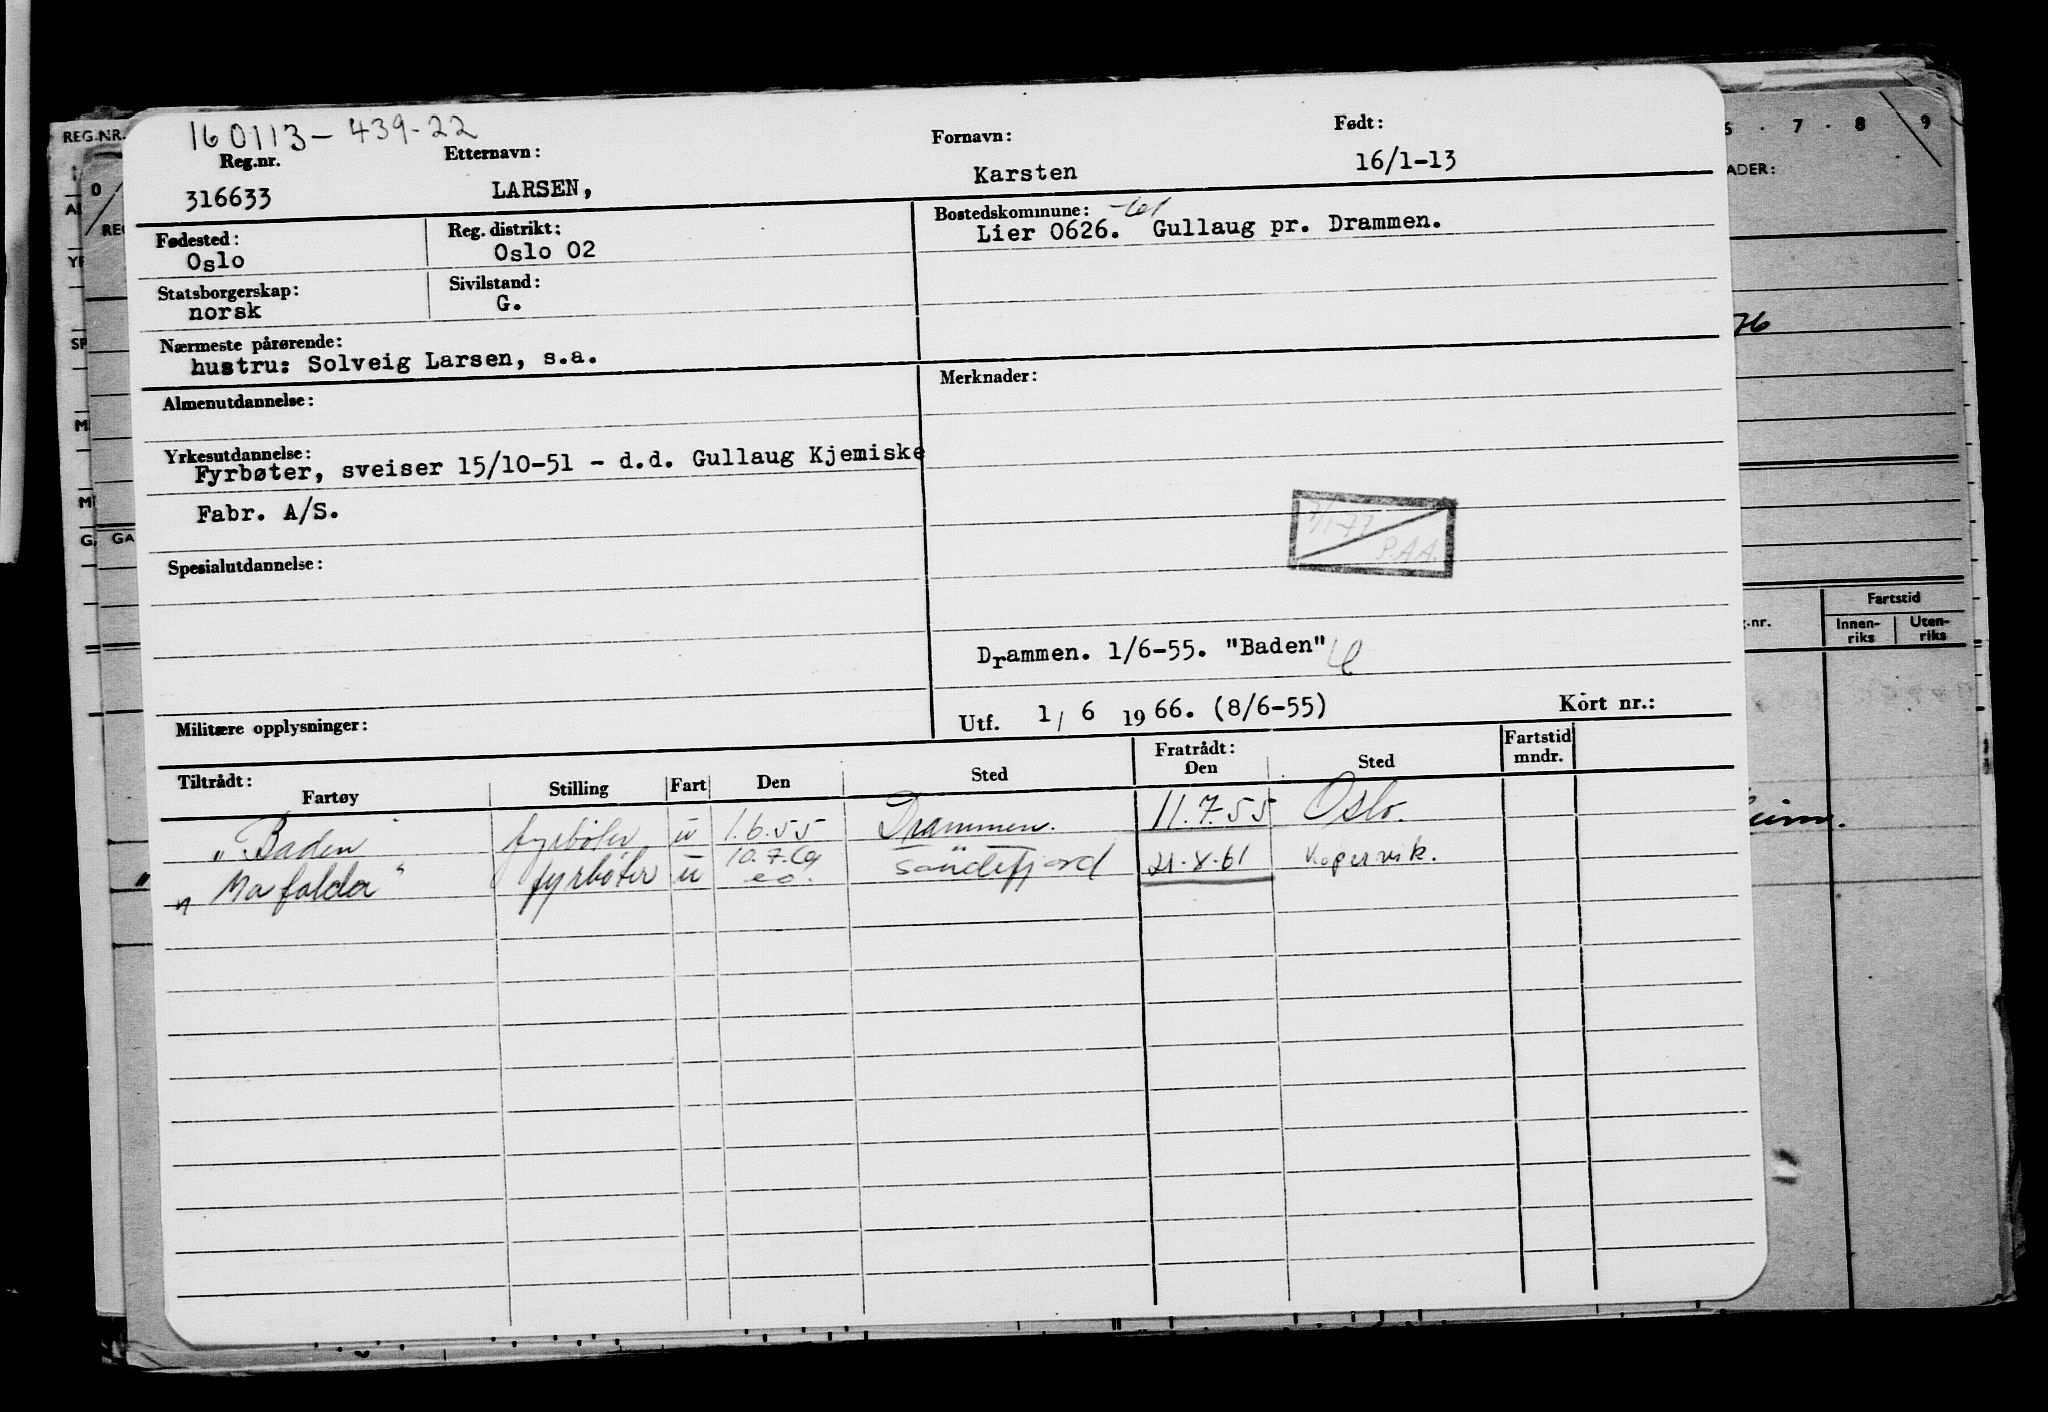 160113-439-22
Reg.nr. Etternavn: Fornavn: Født:
316633 LARSEN, Karsten 16/1-13
Fødested: Reg. distrikt: Bostedskommune:
Oslo Oslo 02 Lier 0626. Gullaug pr. Drammen.
Statsborgerskap: Sivilstand:
norsk G.
Nærmeste pårørende:
hustru: Solveig Larsen, s.a.
Almenutdannelse: Merknader:
Yrkesutdannelse:
Fyrbøter, sveiser 15/10-51 - d.d. Gullaug Kjemiske
Fabr. A/S.
7/1-77
P.A.A.
Spesialutdannelse:
Drammen. 1/6-55. "Baden"
Militære opplysninger: Utf. 1/6 1966. (8/6-55) Kort nr.:
Tiltrådt: Fratrådt:
Fartøy Stilling Fart Den Sted Den Sted Fartstid mndr.
"Baden fyrbøter u 1.6.55 Drammen. 11.7.55 Oslo.
"Mafalda" fyrbøter u 10.7.61 Sandefjord 21.8.61 Kopervik.
REG.NR.
7 . 8 . 9
ADER:
Fartstid
Innen-riks Uten-riks